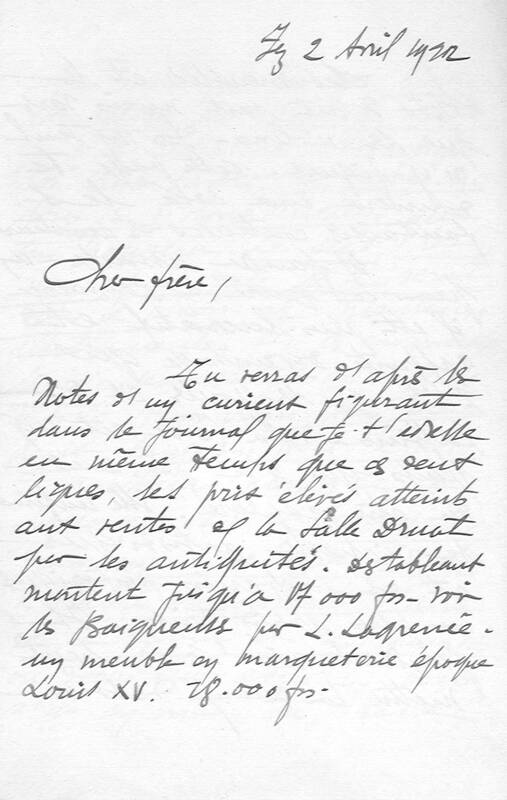 Fez 2 Avril 1922
Cher frère,
Tu verras d'après les
Notes d'un curieux figurant
dans le Journal que je t'adresse
en même temps que ces
lignes, les prix élevés atteints
aux ventes de la Salle Druot
par les antiquités. Des tableaux
montent jusqu'à 17 000 frs- voir
les Baigneuses par L. Lagrenée-
un meuble en marqueterie époque
Louis XV. 18.000 frs-